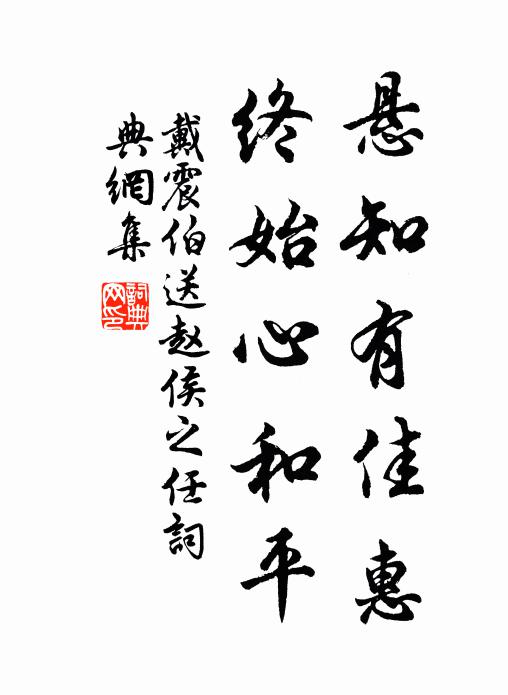 悬知有佳惠
终始心和平
戴震伯送赵侯之任詞
典網集
詞典网印